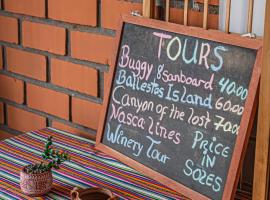 TOURS
Buggy & Sanboard 40.00
Ballestos Island 60.00
Canyon of the lost 70.00
Nasca lines PRICE
Winery Tour IN
SOLES